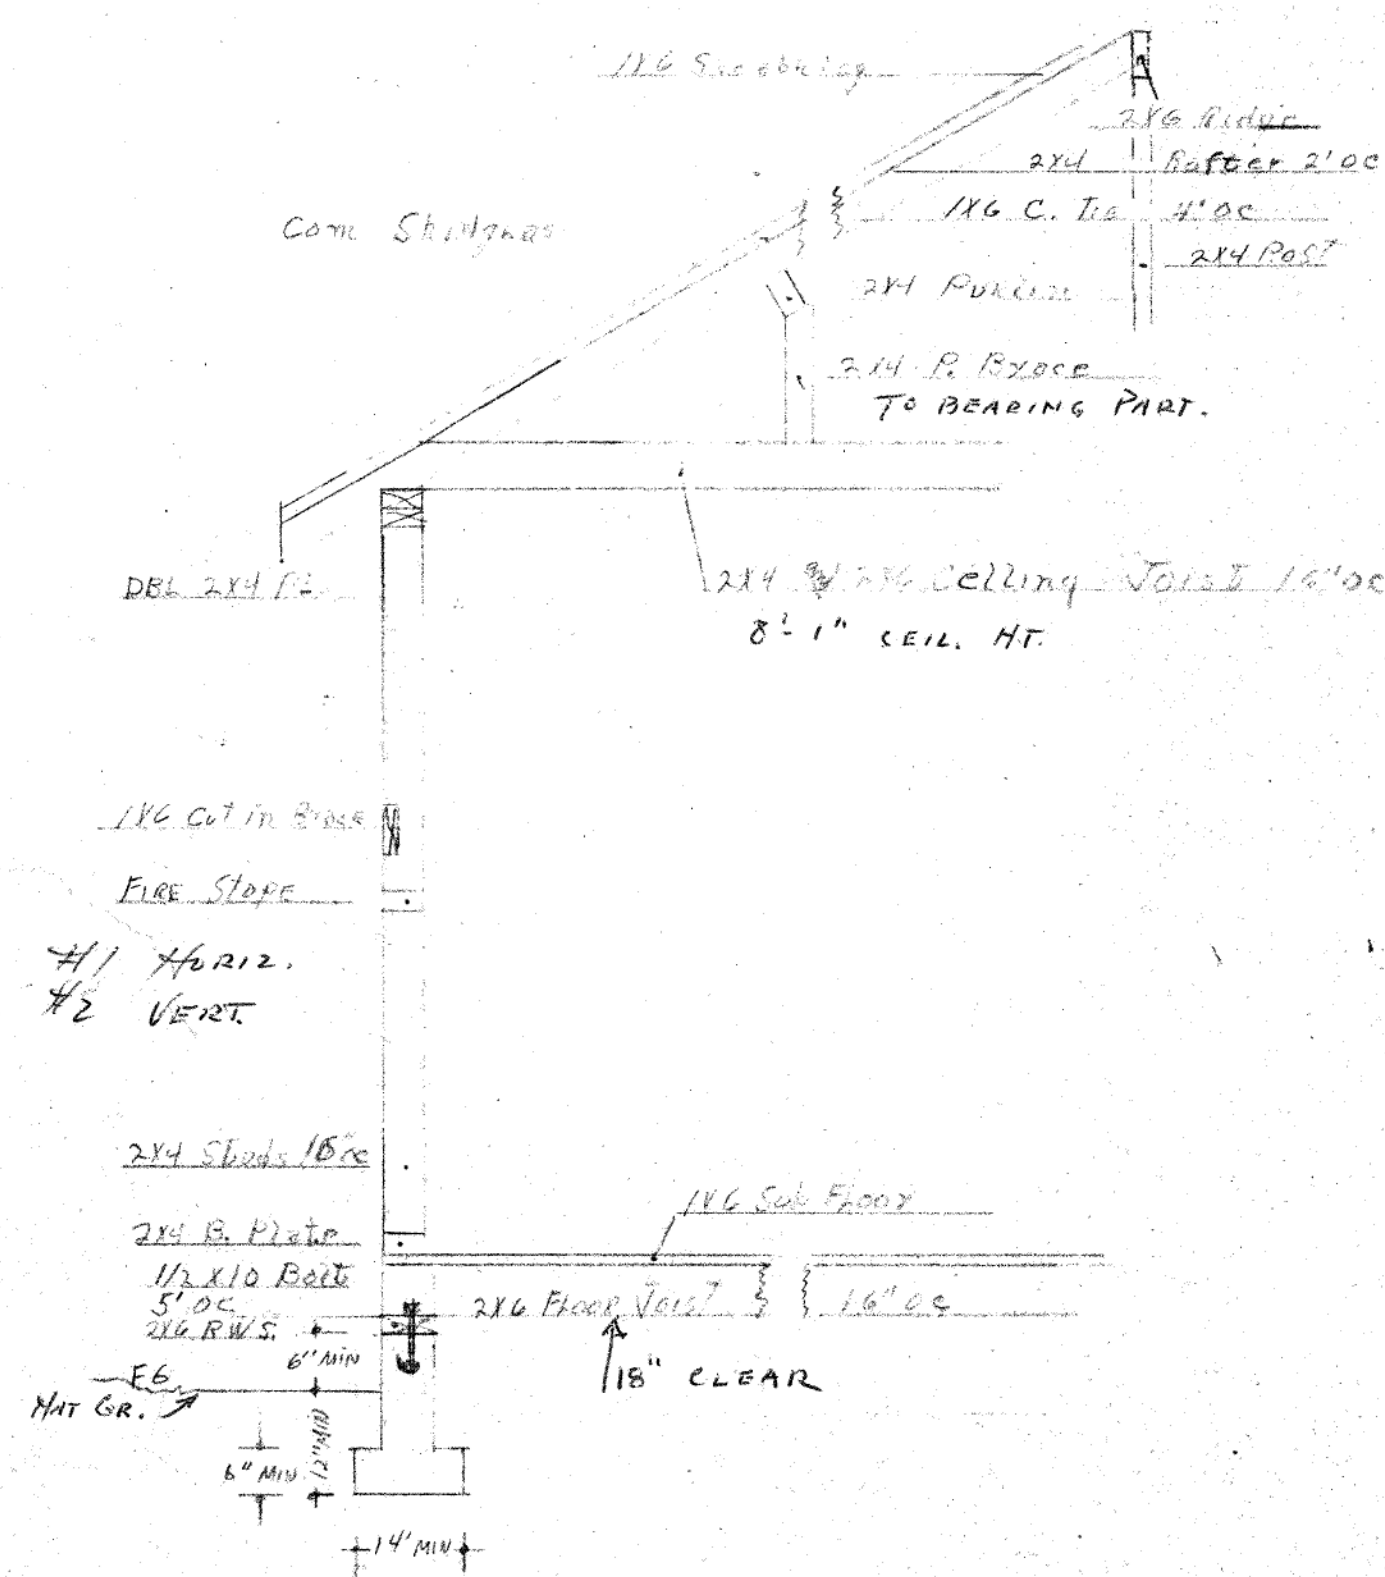 1X6
2X6 Ridge
2X4 Rafter 2' OC
1X6 C. Tie 4' OC
2X4 Post
Com Shingles
2X4 Purlin
2X4 P. Brace
TO BEARING PART.
DBL 2X4 PL
2X4 2X6 Celling Joist 16" OC
8'-1" CEIL. HT.
1X6 Cut in Brace
FIRE Stope
#1 HORIZ.
#2 VERT.
2X4 Studs 16" oc
1X6 Sub Floor
2X4 B. Plate
1/2 X10 Bolt
5' OC
2X6 Floor Joist 16" OC
2X6 RWS.
6" MIN
18" CLEAR
FG
NAT GR.
12" MIN
6" MIN
14' MIN